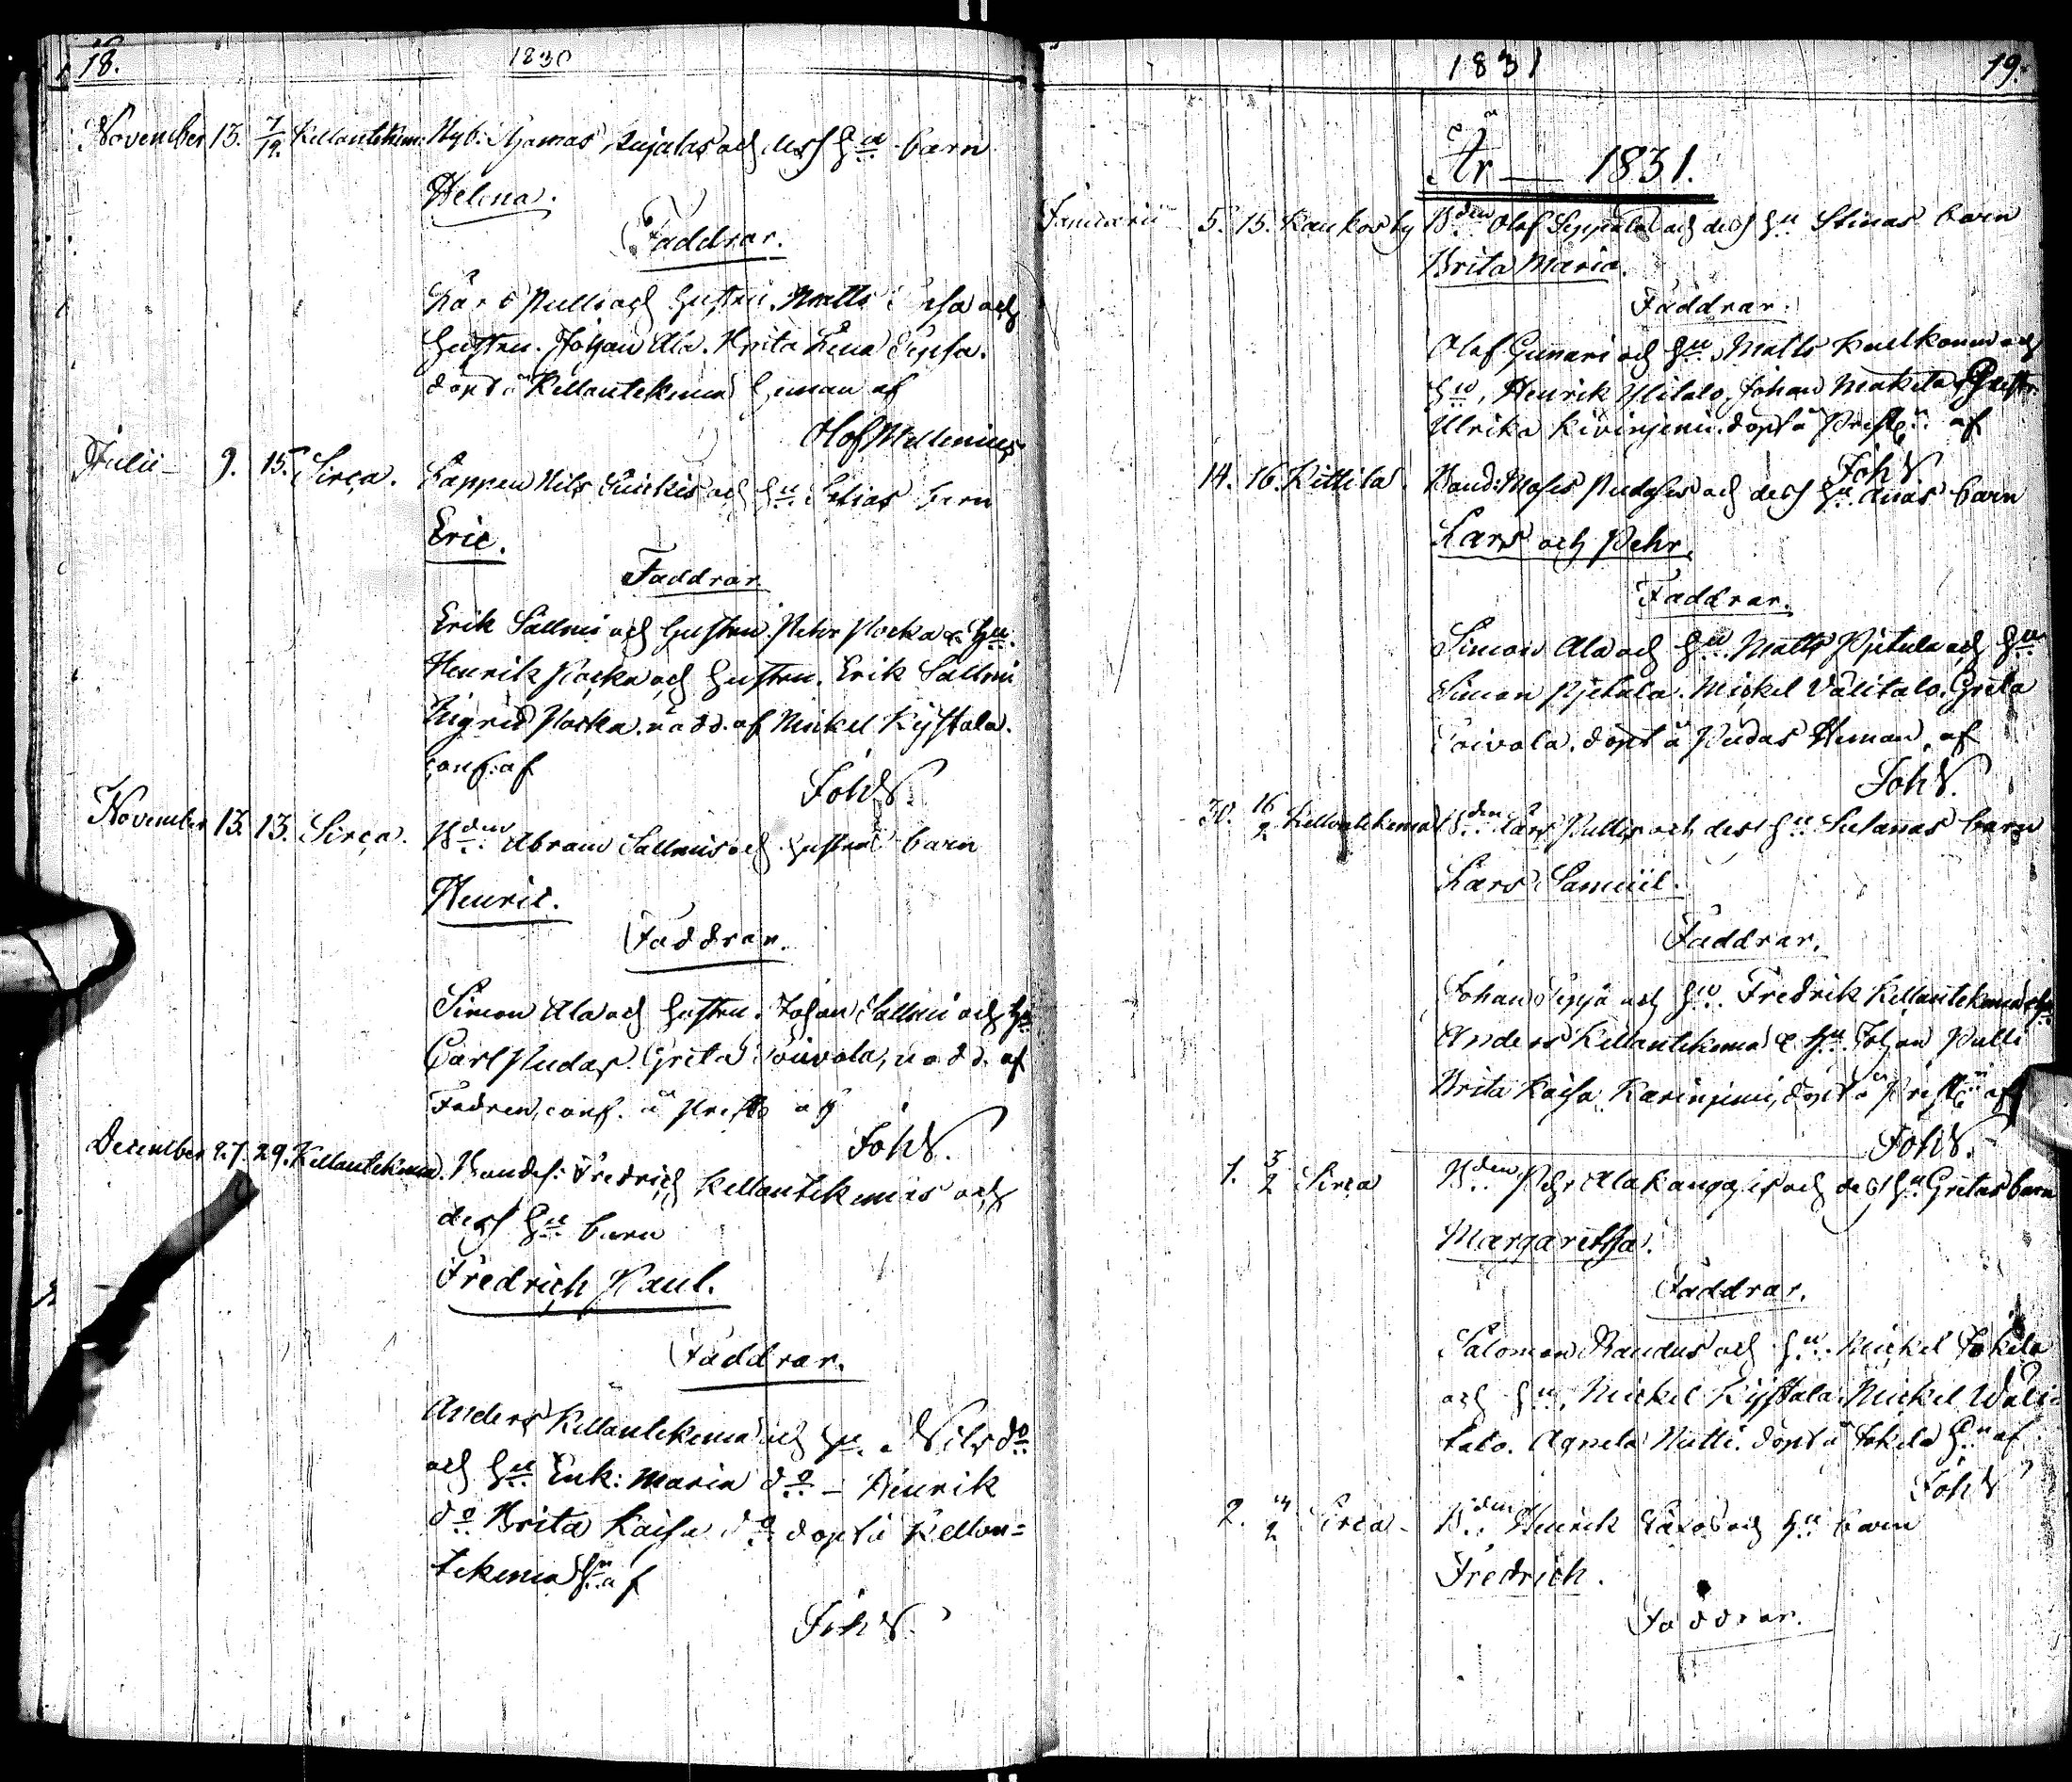 18.
1830
November 13. 7/12. Kellontekem: Nyb. Thomas och dess Hu barn
Helena.
Faddrar.
Lars Pulli och Hustru. Matts och
Hustru. Johan Ala. Brita Lena
döpt å Kellontekema Heman af
Olof Mellenius
Julii 9. 15. Sirca. Lappen Nils och Hu barn
Eric.
Faddrar.
Erik Sallmi och Hustru. Pehr Pocka & Hu.
Henrik Pocka och Hustru. Erik Sallmi
Ingrid Pocka. nödd. af Mickel Kystala.
conf. af
Joh W.
November 13. 13. Sirca. Bden Abram Sallmis och Hustrus barn
Henric.
Faddrar.
Simon Ala och Hustru. Johan Sallmi och Hu
Carl Pudas. Greta Toivola, nödd. af
Fadren, conf. å Prestb af
Joh W.
December 27. 29. Kellontekema. Bondes: Fredrich Kellontekemis och
dess Hu barn
Fredrich Paul.
Faddrar.
Anders Kellontekema och Hu. Nils do
och Hu Enk: Maria do – Henrik
do Brita Kaisa do döpt å Kellon=
tekema Hn af
Joh W.
1831
19.
År — 1831.
Januarii 5. 15. Kaukosby Bden Olof Seppäläs och dess Hu Stinas barn
Brita Maria.
Faddrar.
Olof Gunnari och Hu, Matts och
Hu, Henrik Ylitalo, Johan Makela
Ulrika Kivinjemi. döpt å Prestg. af
Joh W.
14. 16. Kittila. Bond: Moses Pudases och dess Hu Anas barn
Lars och Pehr.
Faddrar.
Simon Ala och Hu. Matts Pjetula och Hu
Simon Pjetala. Mickel Välitalo. Greta
Toivola. döpt å Pudas Heman. af
Joh W.
30. 16/2 Kellontekema Bden Lars Pullis och dess Hu Susanas barn
Lars Samuel.
Faddrar.
Johan och Hu. Fredrik Kellontekema & Hu
Anders Kellontekema & Hu. Johan Pulli
Brita Kaisa döpt å Prestg. af
Joh W.
1. 3/2 Sirca Bden Pehr Alakangas och dess Hu Gretas barn
Margaretha.
Faddrar.
Salomon Raudus och Hu. Mickel Jokela
och Hu, Mickel Kystala. Mickel Wäli=
talo. Agneta Nutti. döpt å Jokela Hn af
Joh W
2. 14/2 Sirca Bden Henrik och Hu barn
Fredrich.
Faddrar.